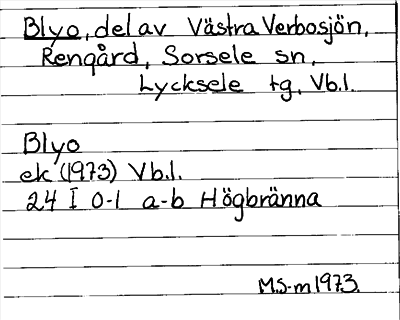 Blyo, del av Västra Verbosjön,
Rengård, Sorsele sn,
Lycksele tg, Vb.l.
Blyo
ek (1973) Vb.l.
24 I 0-1 a-b Högbränna
M.S-m 1973.